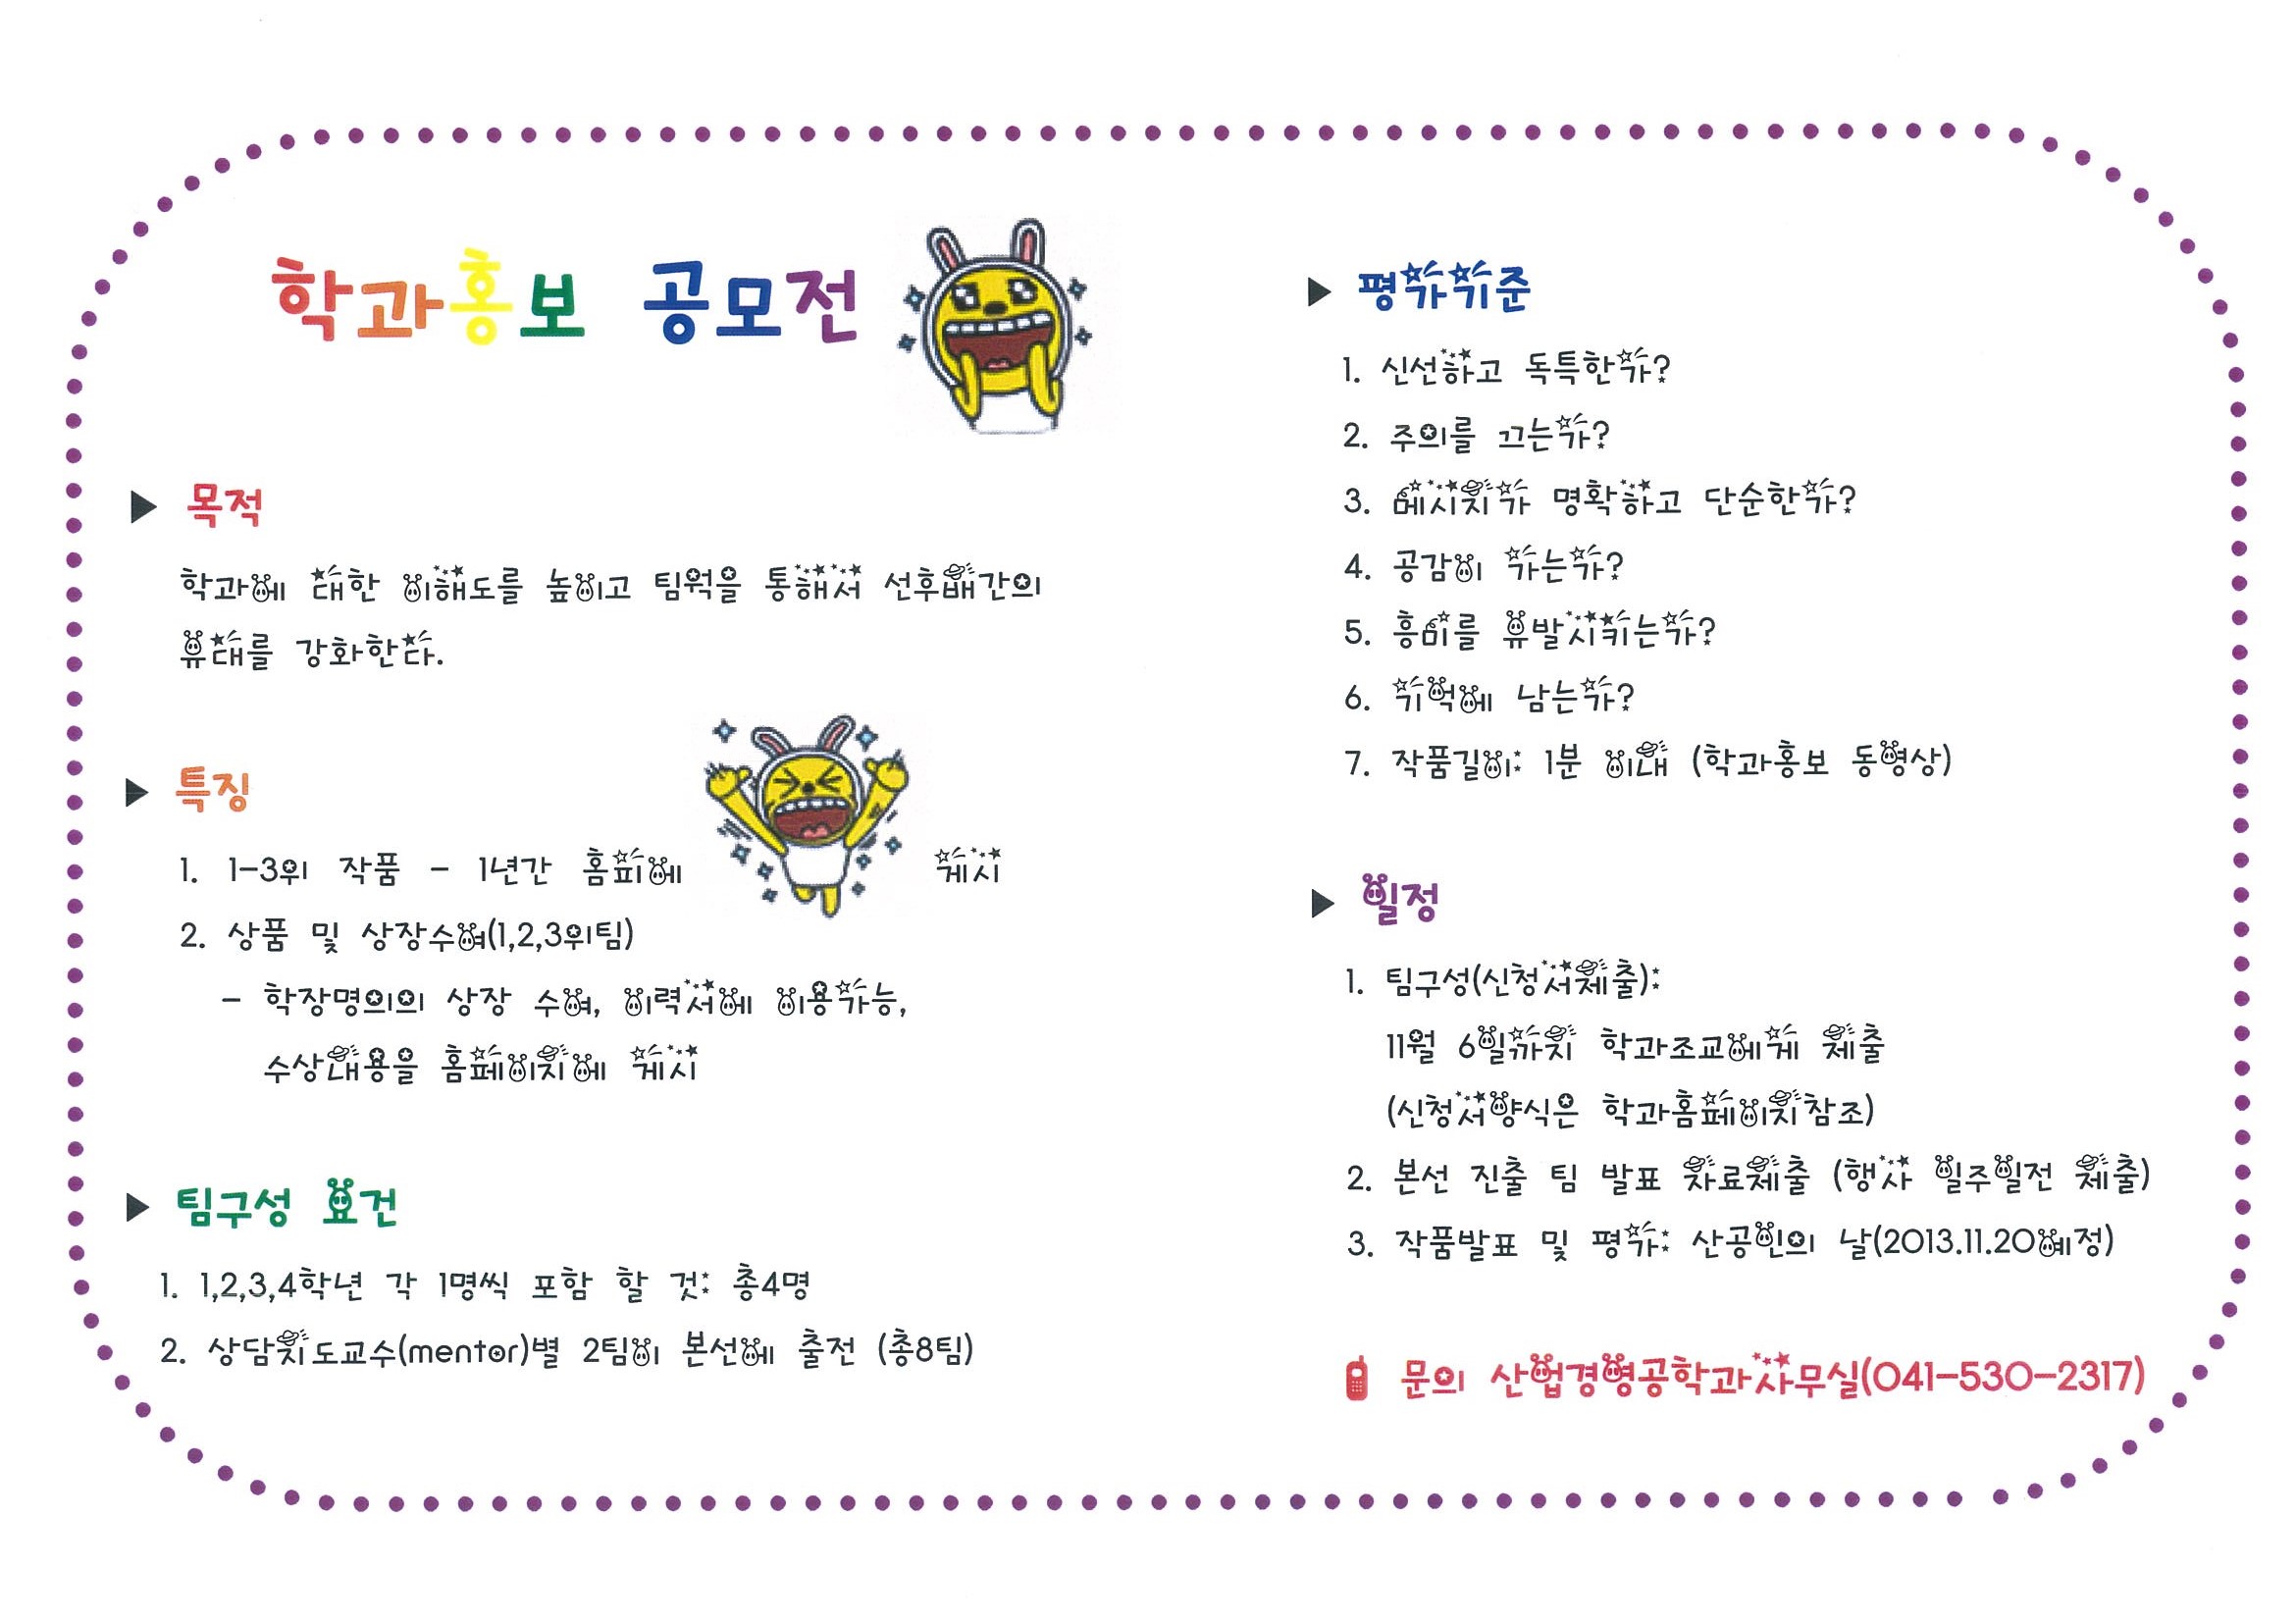 학과홍보 공모전
▶ 목적
학과에 대한 이해도를 높이고 팀웍을 통해서 선후배간의
유대를 강화한다.
▶ 특징
1. 1-3위 작품 - 1년간 홈피에 게시
2. 상품 및 상장수여(1,2,3위팀)
- 학장명의의 상장 수여, 이력서에 이용가능,
수상내용을 홈페이지에 게시
▶ 팀구성 요건
1. 1,2,3,4학년 각 1명씩 포함 할 것: 총4명
2. 상담지도교수(mentor)별 2팀이 본선에 출전 (총8팀)
▶ 평가기준
1. 신선하고 독특한가?
2. 주의를 끄는가?
3. 메시지가 명확하고 단순한가?
4. 공감이 가는가?
5. 흥미를 유발시키는가?
6. 기억에 남는가?
7. 작품길이: 1분 이내 (학과홍보 동영상)
▶ 일정
1. 팀구성(신청서제출):
11월 6일까지 학과조교에게 제출
(신청서양식은 학과홈페이지참조)
2. 본선 진출 팀 발표 자료제출 (행사 일주일전 제출)
3. 작품발표 및 평가: 산공인의 날(2013.11.20예정)
문의 산업경영공학과사무실(041-530-2317)